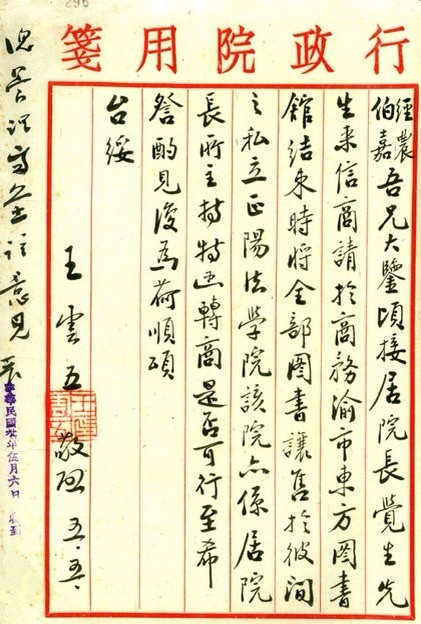 行政院用箋
經農
伯嘉
吾兄大鑒頃接居院長覺生先
生來信商請於商務渝市東方圖書
館結束時將全部圖書讓售於彼間
之私立正陽法學院該院亦係居院
長所主持特函轉商是否可行至希
詧酌見復為荷順頌
台綏
王雲五敬啟 五.五.
意見
中華民國 年伍月六日 收到